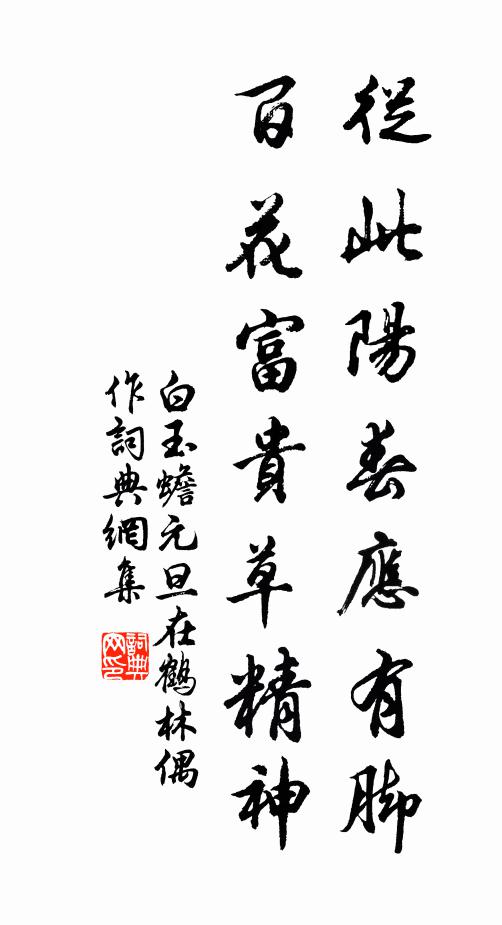 從此陽春應有脚
百花富貴草精神
白玉蟾元旦在鶴林偶
作詞典網集
詞典
网印